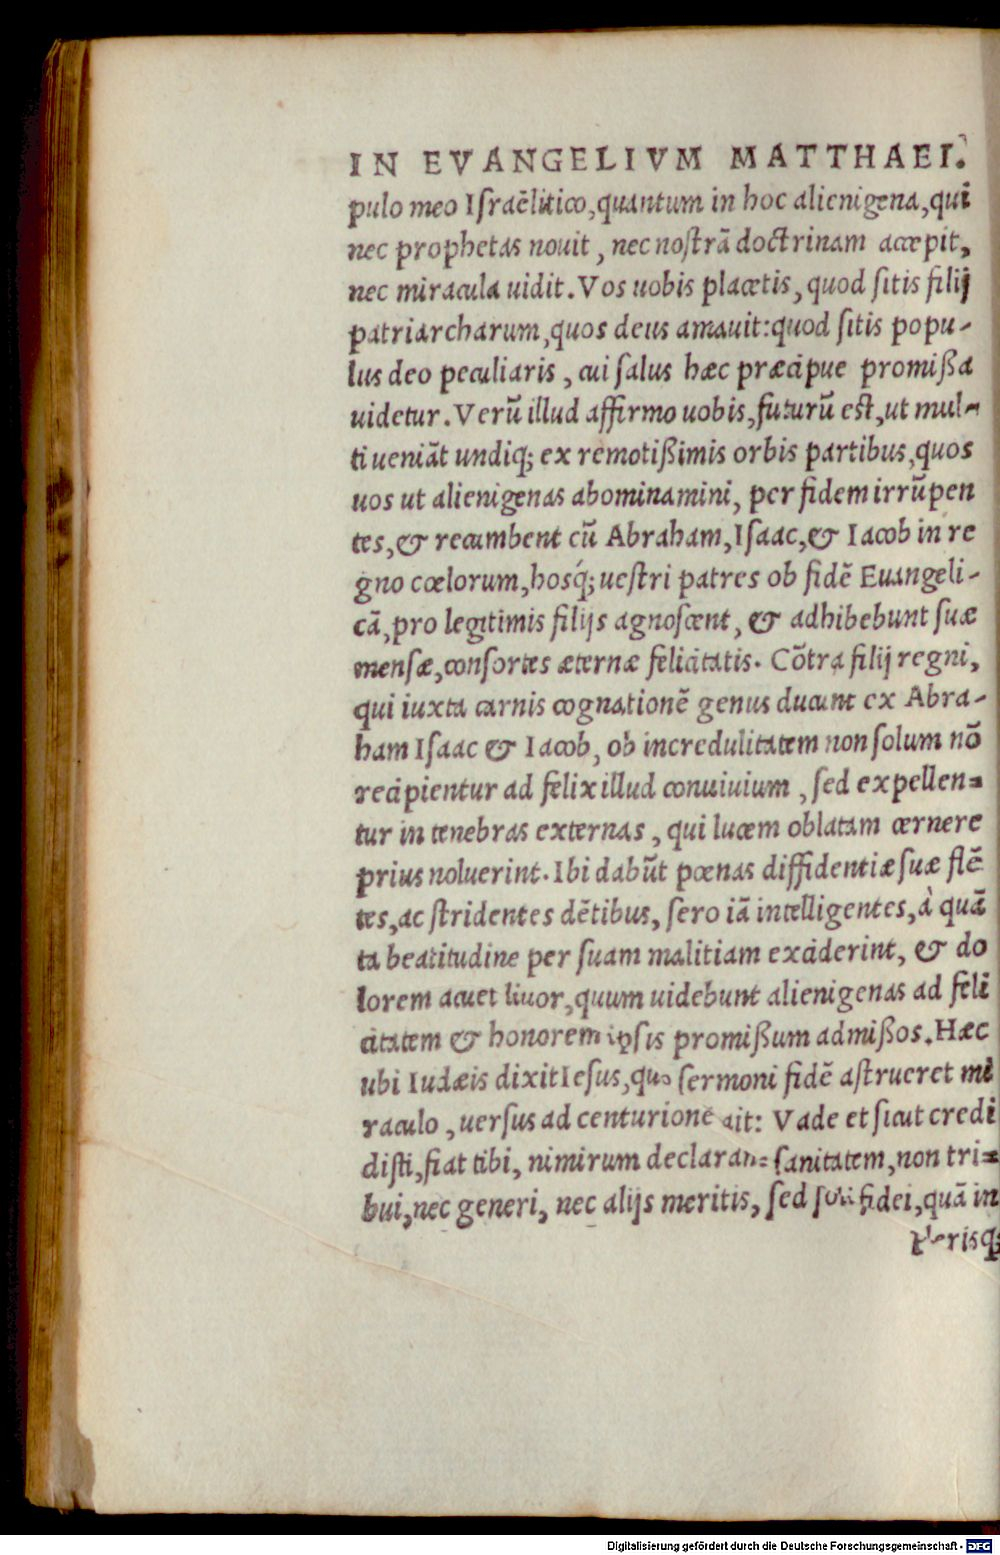 IN EVANGELIVM MATTHAEI.
pulo meo Iſraëlitico,quantum in hoc alienigena,qui
nec prophetas nouit, nec noſtrā doctrinam accepit,
nec miracula uidit. Vos uobis placetis, quod ſitis filij
patriarcharum,quos deus amauit:quod ſitis popu-
lus deo peculiaris, cui ſalus hæc præcipue promiſſa
uidetur. Verū illud affirmo uobis,futurū eſt,ut mul-
ti ueniāt undiq; ex remotiſſimis orbis partibus,quos
uos ut alienigenas abominamini, per fidem irrūpen
tes,& recumbent cū Abraham,Iſaac,& Iacob in re
gno cœlorum,hosq́; ueſtri patres ob fidē Euangeli-
cā,pro legitimis filijs agnoſcent, & adhibebunt ſuæ
menſæ,conſortes æternæ felicitatis. Cōtra filij regni,
qui iuxta carnis cognationē genus ducunt ex Abra-
ham Iſaac & Iacob, ob incredulitatem non ſolum nō
recipientur ad felix illud conuiuium, ſed expellen=
tur in tenebras externas, qui lucem oblatam cernere
prius noluerint. Ibi dabūt pœnas diffidentiæ ſuæ flē
tes,ac ſtridentes dētibus, ſero iā intelligentes,à quā
ta beatitudine per ſuam malitiam exciderint, & do
lorem acuet liuor,quum uidebunt alienigenas ad feli
citatem & honorem ipſis promiſſum admiſſos. Hæc
ubi Iudæis dixit Ieſus,quo ſermoni fidē aſtrueret mi
raculo, uerſus ad centurionē ait: Vade et ſicut credi
diſti,fiat tibi, nimirum declarans ſanitatem,non tri=
bui,nec generi, nec alijs meritis, ſed ſoli fidei,quā in
pleriſq;
Digitalisierung gefördert durch die Deutsche Forschungsgemeinschaft - DFG